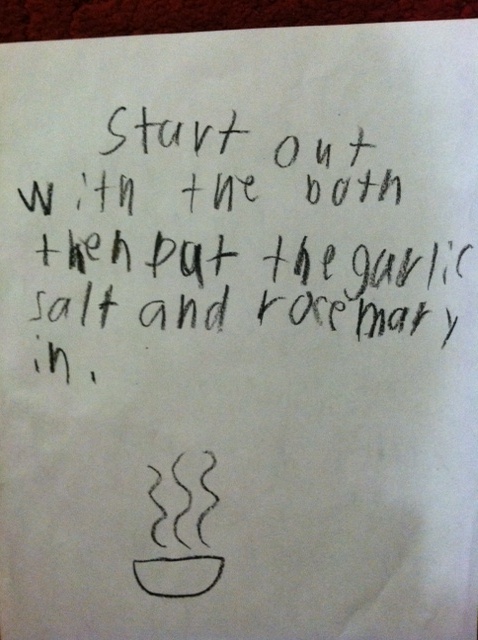 Start out
with the both
then put the garlic
salt and rocemary
in.